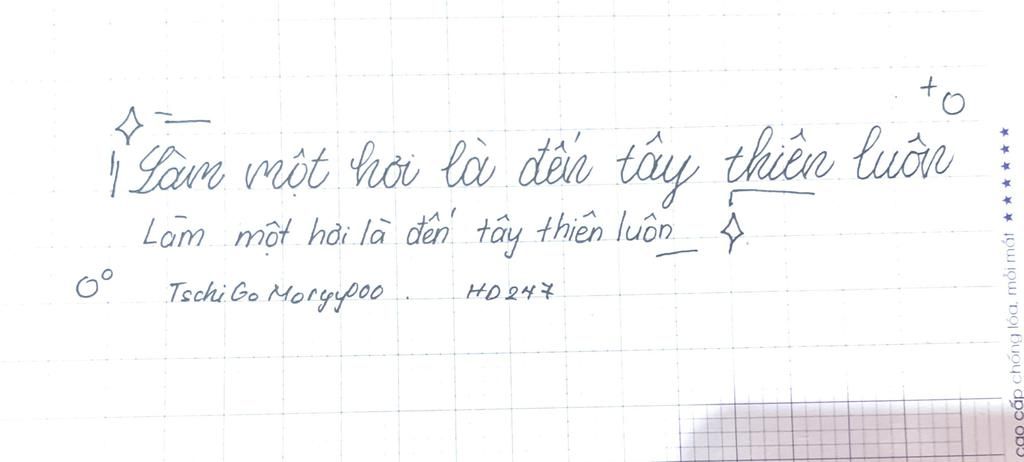 Làm một hơi là đến tây thiên luôn
Làm một hơi là đến tây thiên luôn
TschiGoMorgy000 . HD247
cao cấp chống lóa, mỏi mắt ★★★★★★